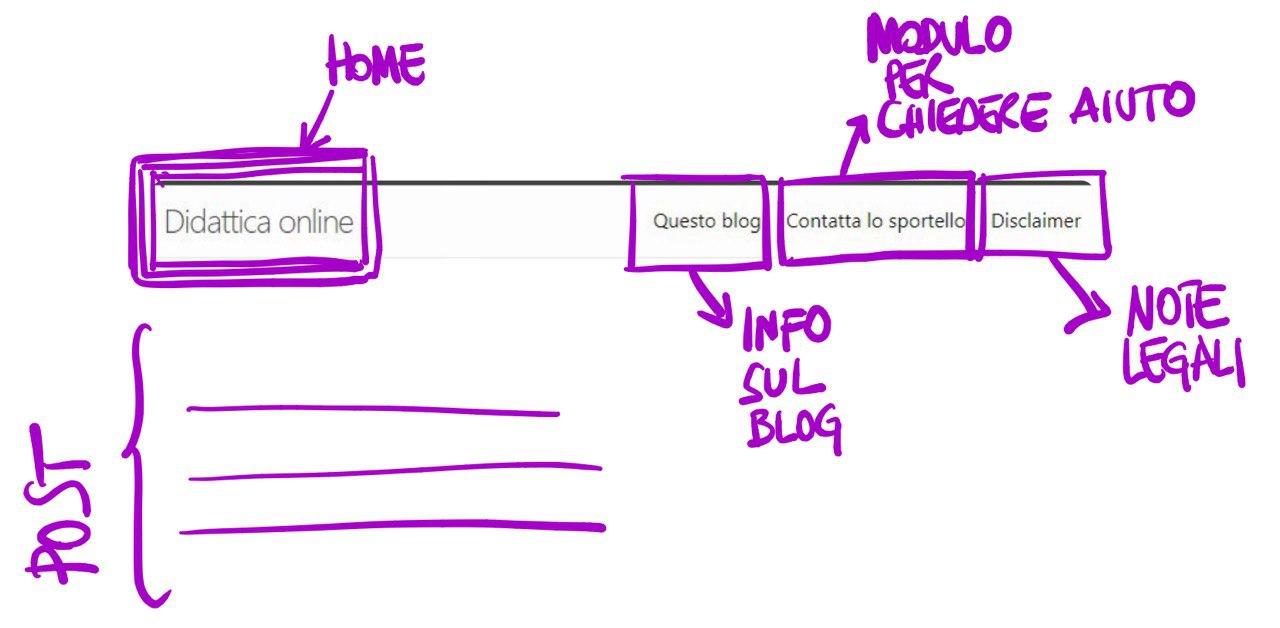 HOME
MODULO
PER
CHIEDERE AIUTO
Didattica online
Questo blog
Contatta lo sportello
Disclaimer
INFO
SUL
BLOG
NOTE
LEGALI
POST